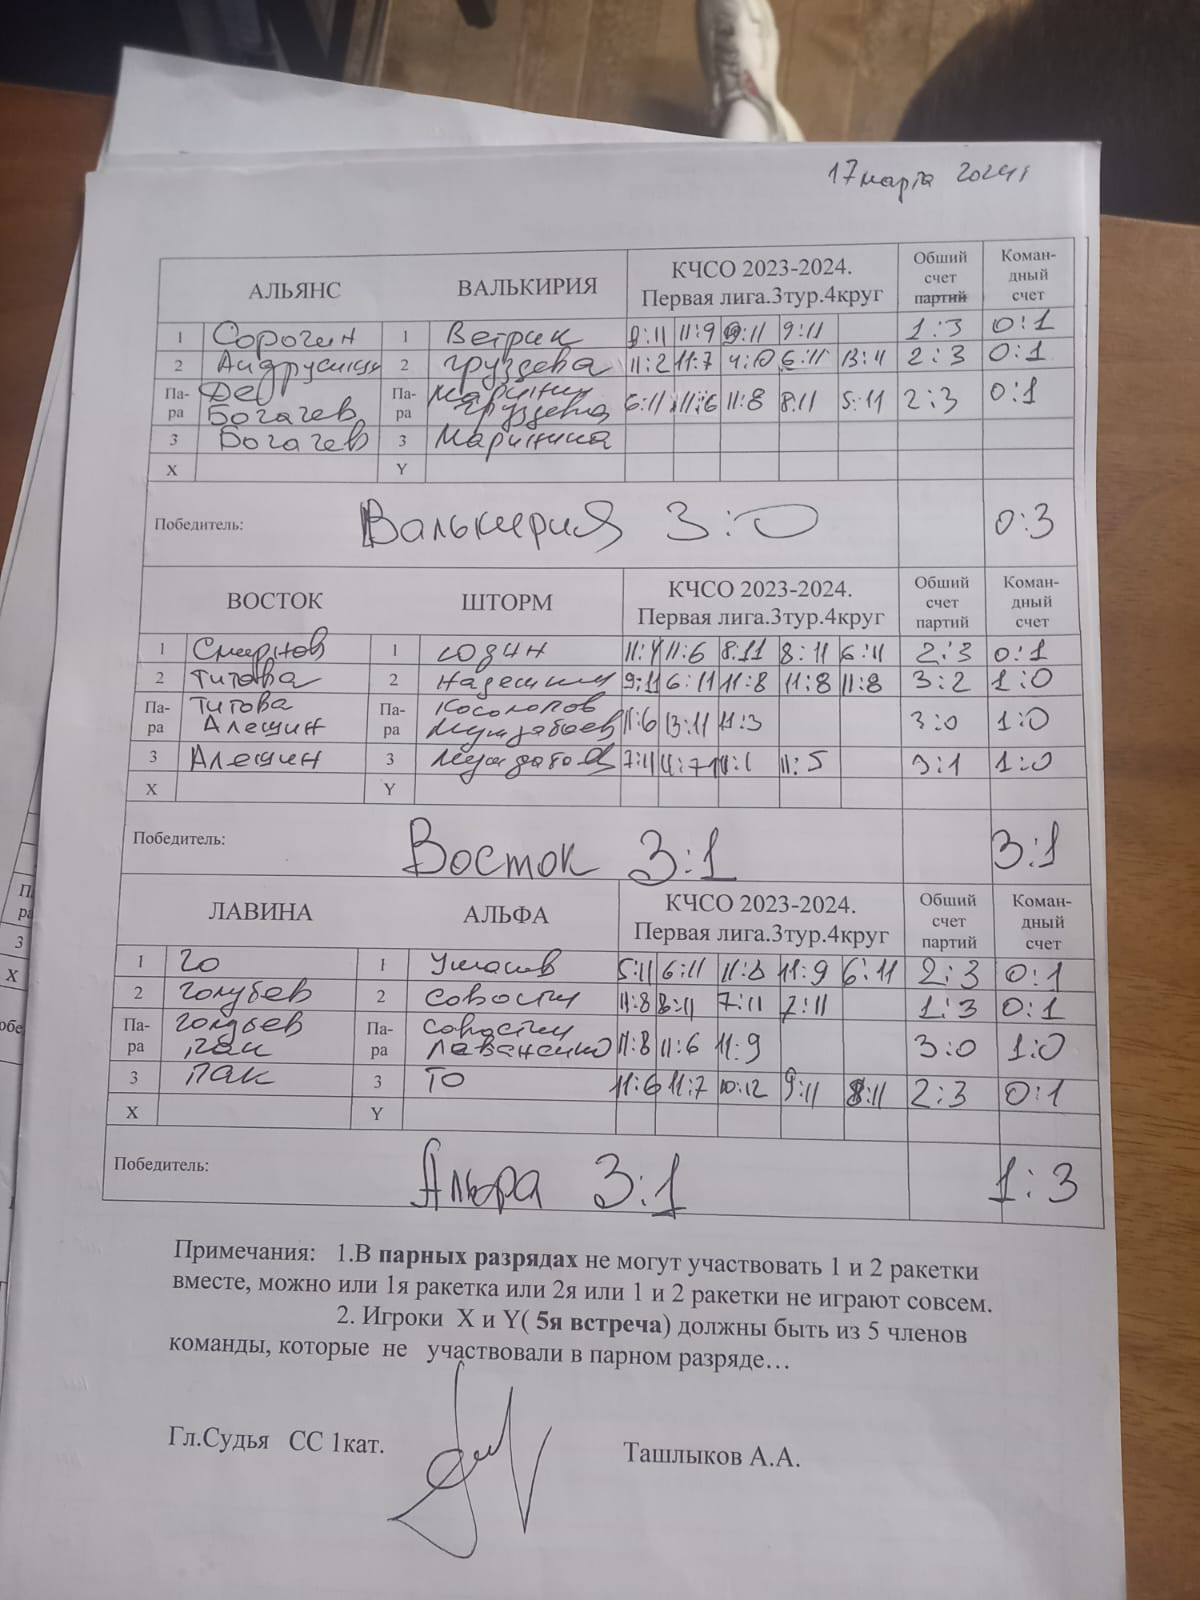 17 марта 2024г
АЛЬЯНС ВАЛЬКИРИЯ КЧСО 2023-2024. Первая лига.3тур.4круг Обший счет партий Коман-дный счет
1 Сорочин 1 Ветрик 9:11 11:9 9:11 9:11 1:3 0:1
2 2 Груздева 11:2 11:7 6:11 13:11 2:3 0:1
Па-ра Де Богачев Па-ра Груздева 6:11 11:6 11:8 8:11 5:11 2:3 0:1
3 Богачев 3 Маринина
X Y
Победитель: Валькирия 3:0 0:3
ВОСТОК ШТОРМ КЧСО 2023-2024. Первая лига.3тур.4круг Обший счет партий Коман-дный счет
1 Смирнов 1 Юдин 11:4 11:6 8:11 8:11 6:11 2:3 0:1
2 Титова 2 9:11 6:11 11:8 11:8 11:8 3:2 1:0
Па-ра Титова Алешин Па-ра Косолапов 11:6 13:11 11:3 3:0 1:0
3 Алешин 3 7:11 11:7 11:5 3:1 1:0
X Y
Победитель: Восток 3:1 3:1
ЛАВИНА АЛЬФА КЧСО 2023-2024. Первая лига.3тур.4круг Обший счет партий Коман-дный счет
1 Го 1 5:11 6:11 11:8 11:9 6:11 2:3 0:1
2 Голубев 2 Совостин 11:8 8:11 7:11 7:11 1:3 0:1
Па-ра Голубев Пак Па-ра Совостин 11:8 11:6 11:9 3:0 1:0
3 Пак 3 То 11:6 11:7 10:12 9:11 8:11 2:3 0:1
X Y
Победитель: Альфа 3:1 1:3
Примечания: 1.В парных разрядах не могут участвовать 1 и 2 ракетки
вместе, можно или 1я ракетка или 2я или 1 и 2 ракетки не играют совсем.
2. Игроки X и Y( 5я встреча) должны быть из 5 членов
команды, которые не участвовали в парном разряде…
Гл.Судья СС 1кат. Ташлыков А.А.